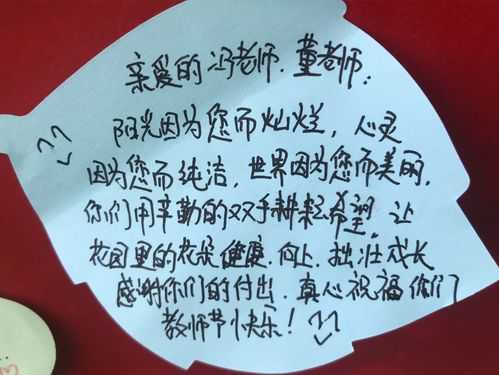 亲爱的冯老师、董老师：
阳光因为您而灿烂，心灵
因为您而纯洁，世界因为您而美丽，
你们用辛勤的双手耕耘希望，让
花园里的花朵健康、向上、拙壮成长
感谢你们的付出、真心祝福你们
教师节快乐！